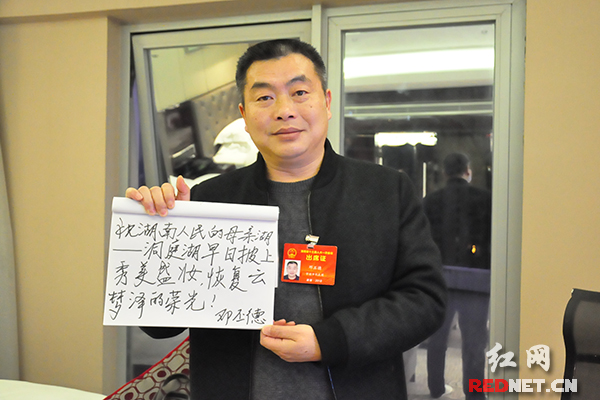 祝湖南人民的母亲湖
——洞庭湖早日披上
秀美盛妆,恢复云
梦泽的荣光!
邓丕德
出席证
红网
REDNET.CN